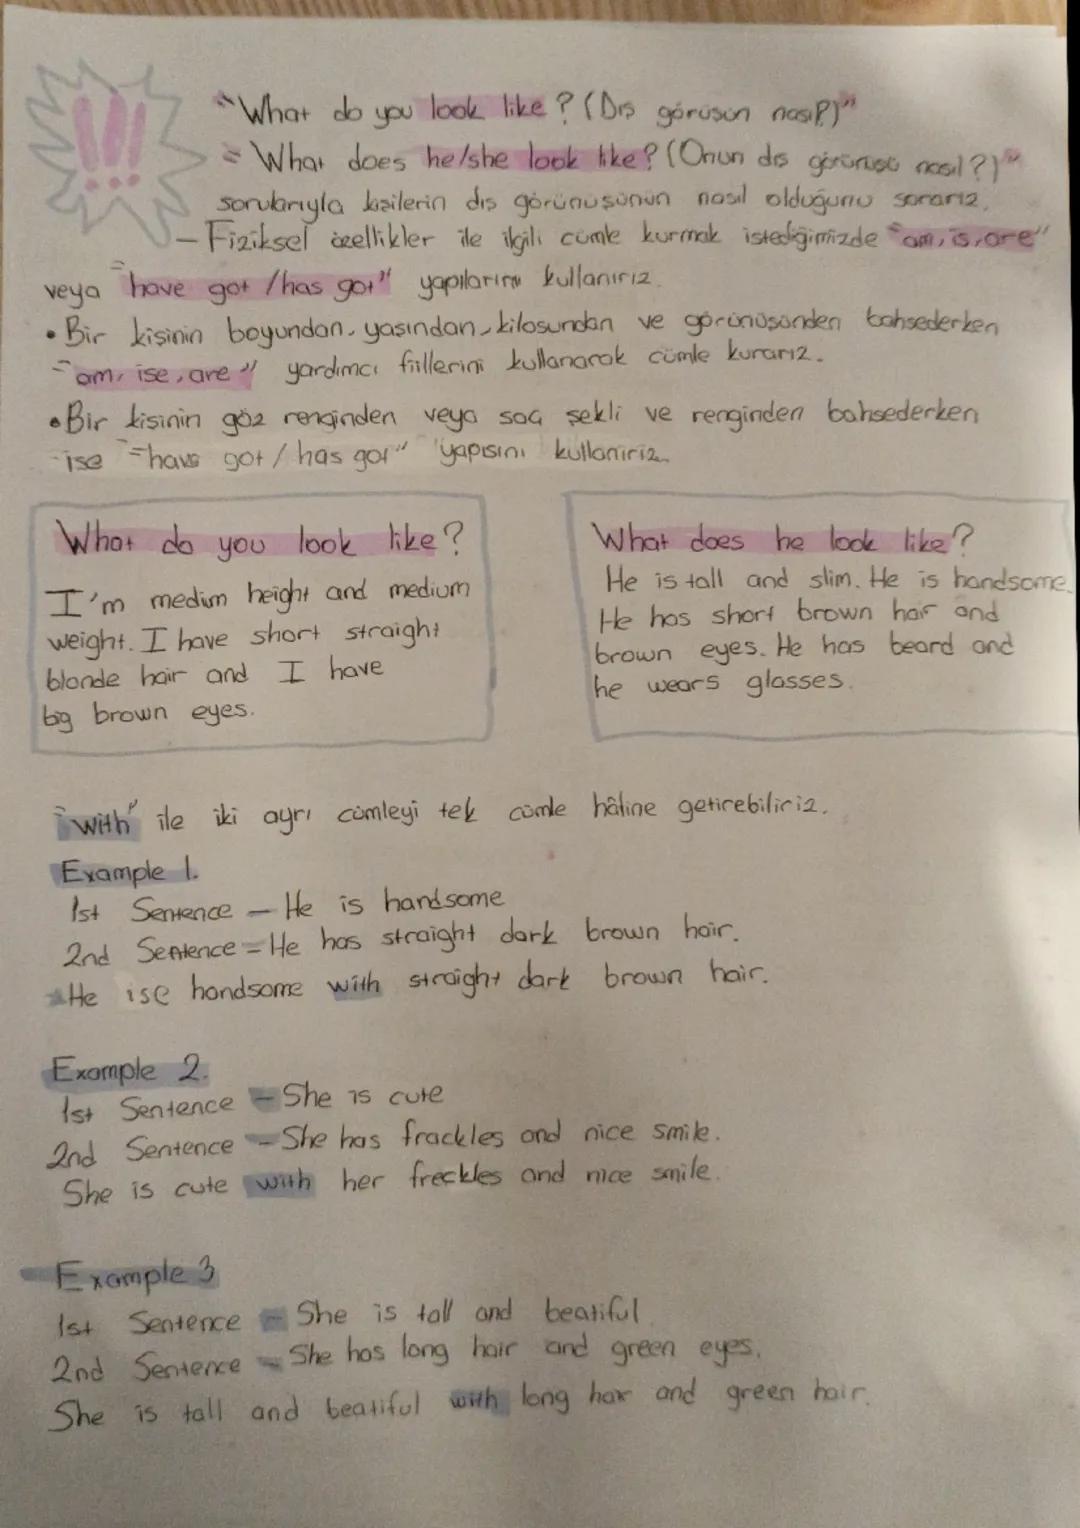 !!!
"What do you look like? (Dış görüşün nasıl?)"
"What does he/she look like? (Onun dış görünüşü nasıl?)"
sorularıyla kişilerin dış görünüşünün nasıl olduğunu sorarız.
- Fiziksel özellikler ile ilgili cümle kurmak istediğimizde "am, is, are"
veya "have got /has got" yapılarını kullanırız.
• Bir kişinin boyundan, yaşından, kilosundan ve görünüşünden bahsederken
"am, ise, are" yardımcı fiillerini kullanarak cümle kurarız.
• Bir kişinin göz renginden veya saç şekli ve renginden bahsederken
ise "have got / has got" yapısını kullanırız.
What do you look like?
I'm medium height and medium
weight. I have short straight
blonde hair and I have
big brown eyes.
What does he look like?
He is tall and slim. He is handsome.
He has short brown hair and
brown eyes. He has beard and
he wears glasses.
"with" ile iki ayrı cümleyi tek cümle hâline getirebiliriz.
Example 1.
1st Sentence - He is handsome
2nd Sentence - He has straight dark brown hair.
He ise handsome with straight dark brown hair.
Example 2.
1st Sentence - She is cute
2nd Sentence - She has frackles and nice smile.
She is cute with her freckles and nice smile.
Example 3
1st Sentence - She is tall and beatiful.
2nd Sentence - She has long hair and green eyes.
She is tall and beatiful with long hair and green hair.